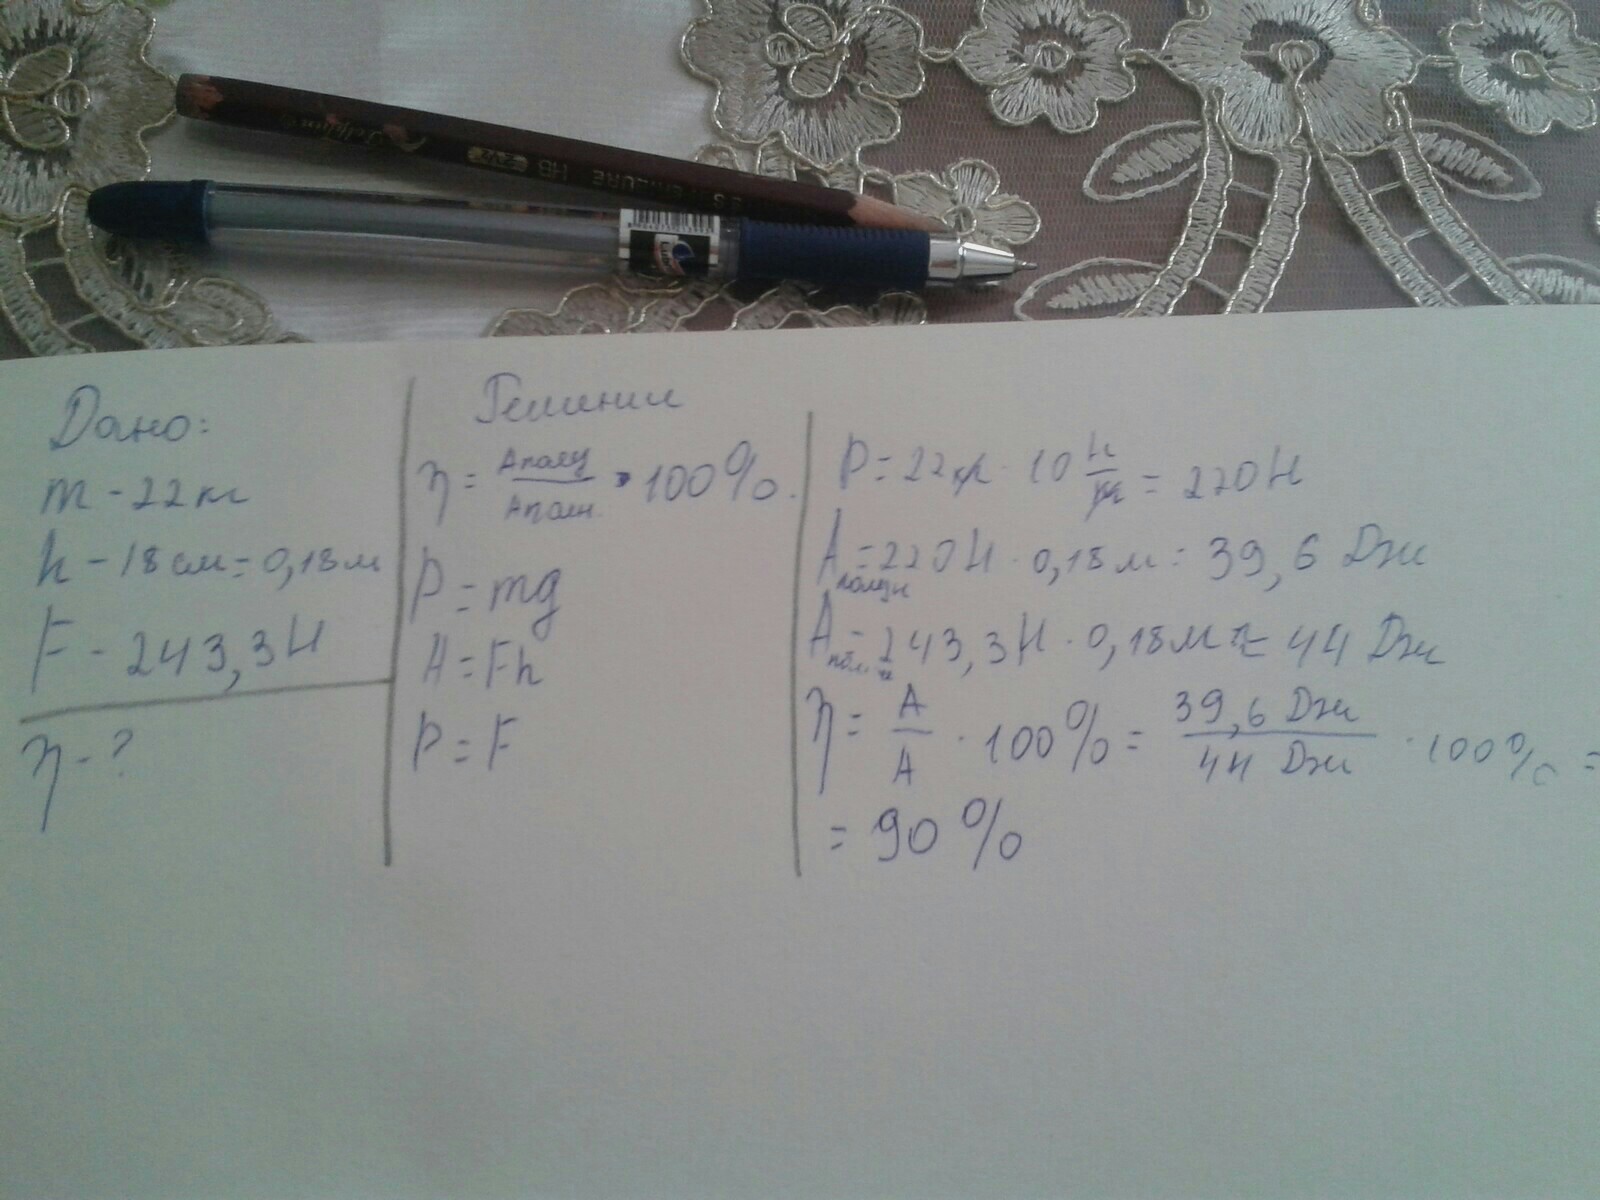 HB
Дано:
m - 22 кг
h - 18 см = 0,18 м
F - 243,3 Н
η - ?
Решении
η = Аполу / Аполн. · 100%.
P = mg
A = Fh
P = F
P = 22 кг · 10 Н/кг = 220 Н
Аполезн = 220 Н · 0,18 м = 39,6 Дж
Аполн = 243,3 Н · 0,18 м ≈ 44 Дж
η = А / А · 100% = 39,6 Дж / 44 Дж · 100% =
= 90 %